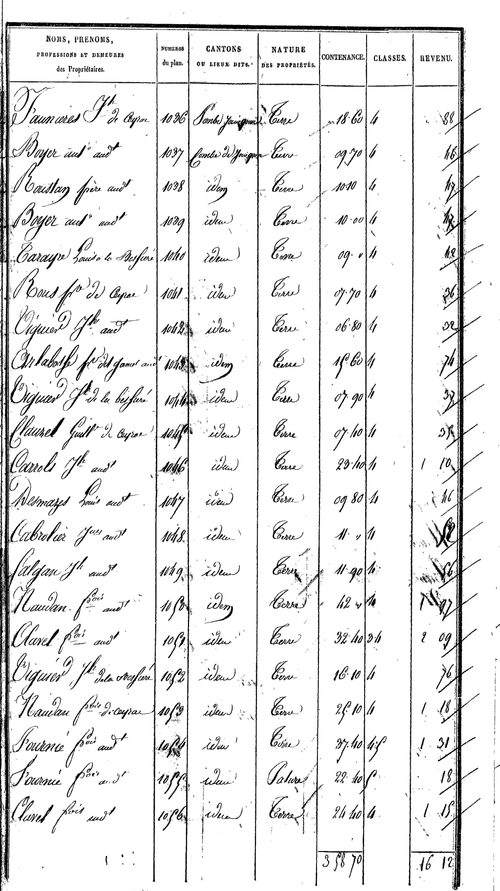 NOMS, PRENOMS, PROFESSIONS ET DEMEURES des Propriétaires. NUMEROS du plan. CANTONS OU LIEUX DITS. NATURE DES PROPRIÉTÉS. CONTENANCE. CLASSES. REVENU.
Jh de Ceyrac 1036 Terre 18 60 4 88
Boyer audt 1037 Combe de Terre 09 70 4 46
Roustan frère audt 1038 idem Terre 10 10 4
Boyer audt 1039 idem Terre 10 00 4
Carayre Louis a la 1040 idem Terre 09 " 4 42
Rous de Ceyrac 1041 idem Terre 07 70 4 36
Viguier Jh audt 1042 idem Terre 06 80 4 32
audt 1043 idem Terre 15 60 4 74
Viguier Jh de la 1044 idem Terre 07 90 4 37
Clauzel de Ceyrac 1045 idem Terre 07 40 4 35
Carrols Jh audt 1046 idem Terre 23 40 4 1 10
Desmazes Louis audt 1047 idem Terre 09 80 4 46
Cabrolier audt 1048 idem Terre 11 " 4
Salgan Jh audt 1049 idem Terre 11 90 4 56
Naudan fcois audt idem Terre 42 " 4 97
Clavel fcois audt 1051 idem Terre 32 40 34 2 09
Viguier Jh de la 1052 idem Terre 16 10 4 76
Naudan fcois de Ceyrac 1053 idem Terre 25 10 4 1 18
Fournié fcois audt 1054 idem Terre 37 40 45 1 31
Fournié fcois audt 1055 idem Pature 22 40 5 18
Clavel fcois audt 1056 idem Terre 24 40 4 1 15
3 58 70 16 12